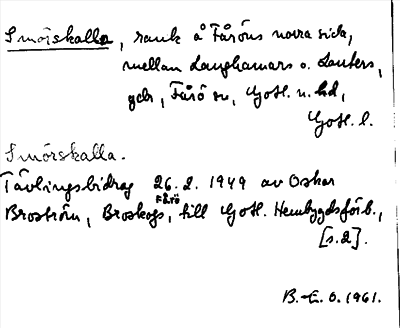 Smörskalla, rauk å Fåröns norra sida,
mellan Langhamars o. Lauters,
geb, Fårö sn, Gotl. n. hd,
Gotl. l.
Smörskalla.
Tävlingsbidrag 26.2.1949 av Oskar
Fårö
Broström, Broskogs, till Gotl. Hembygdsförb.,
[s.2].
B.-E.O.1961.